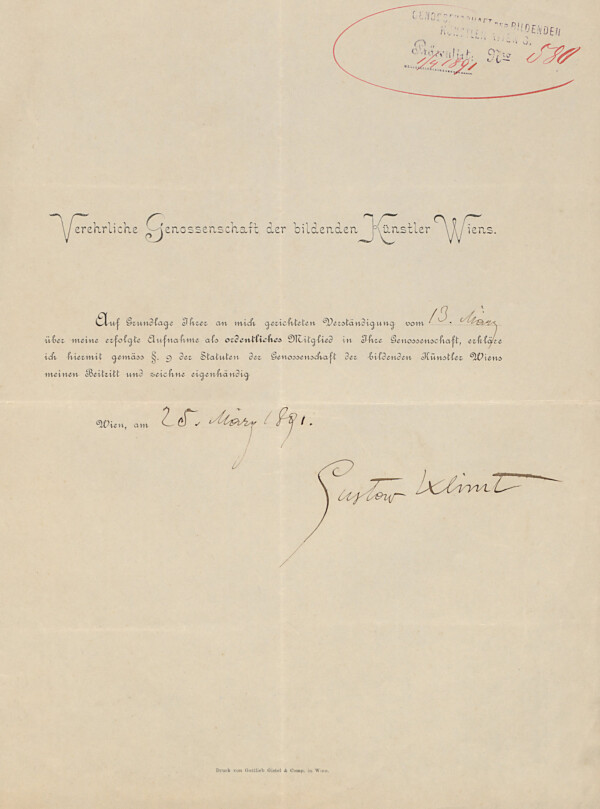 GENOSSENSCHAFT DER BILDENDEN
KÜNSTLER WIEN'S.
Präsentirt. Nro 580
1/4 1891
Verehrliche Genossenschaft der bildenden Künstler Wiens.
Auf Grundlage Ihrer an mich gerichteten Verständigung vom 13. März
über meine erfolgte Aufnahme als ordentliches Mitglied in Ihre Genossenschaft, erkläre
ich hiermit gemäss §. 9 der Statuten der Genossenschaft der bildenden Künstler Wiens
meinen Beitritt und zeichne eigenhändig
Wien, am 25. März 1891.
Gustav Klimt
Druck von Gottlieb Gistel & Comp. in Wien.